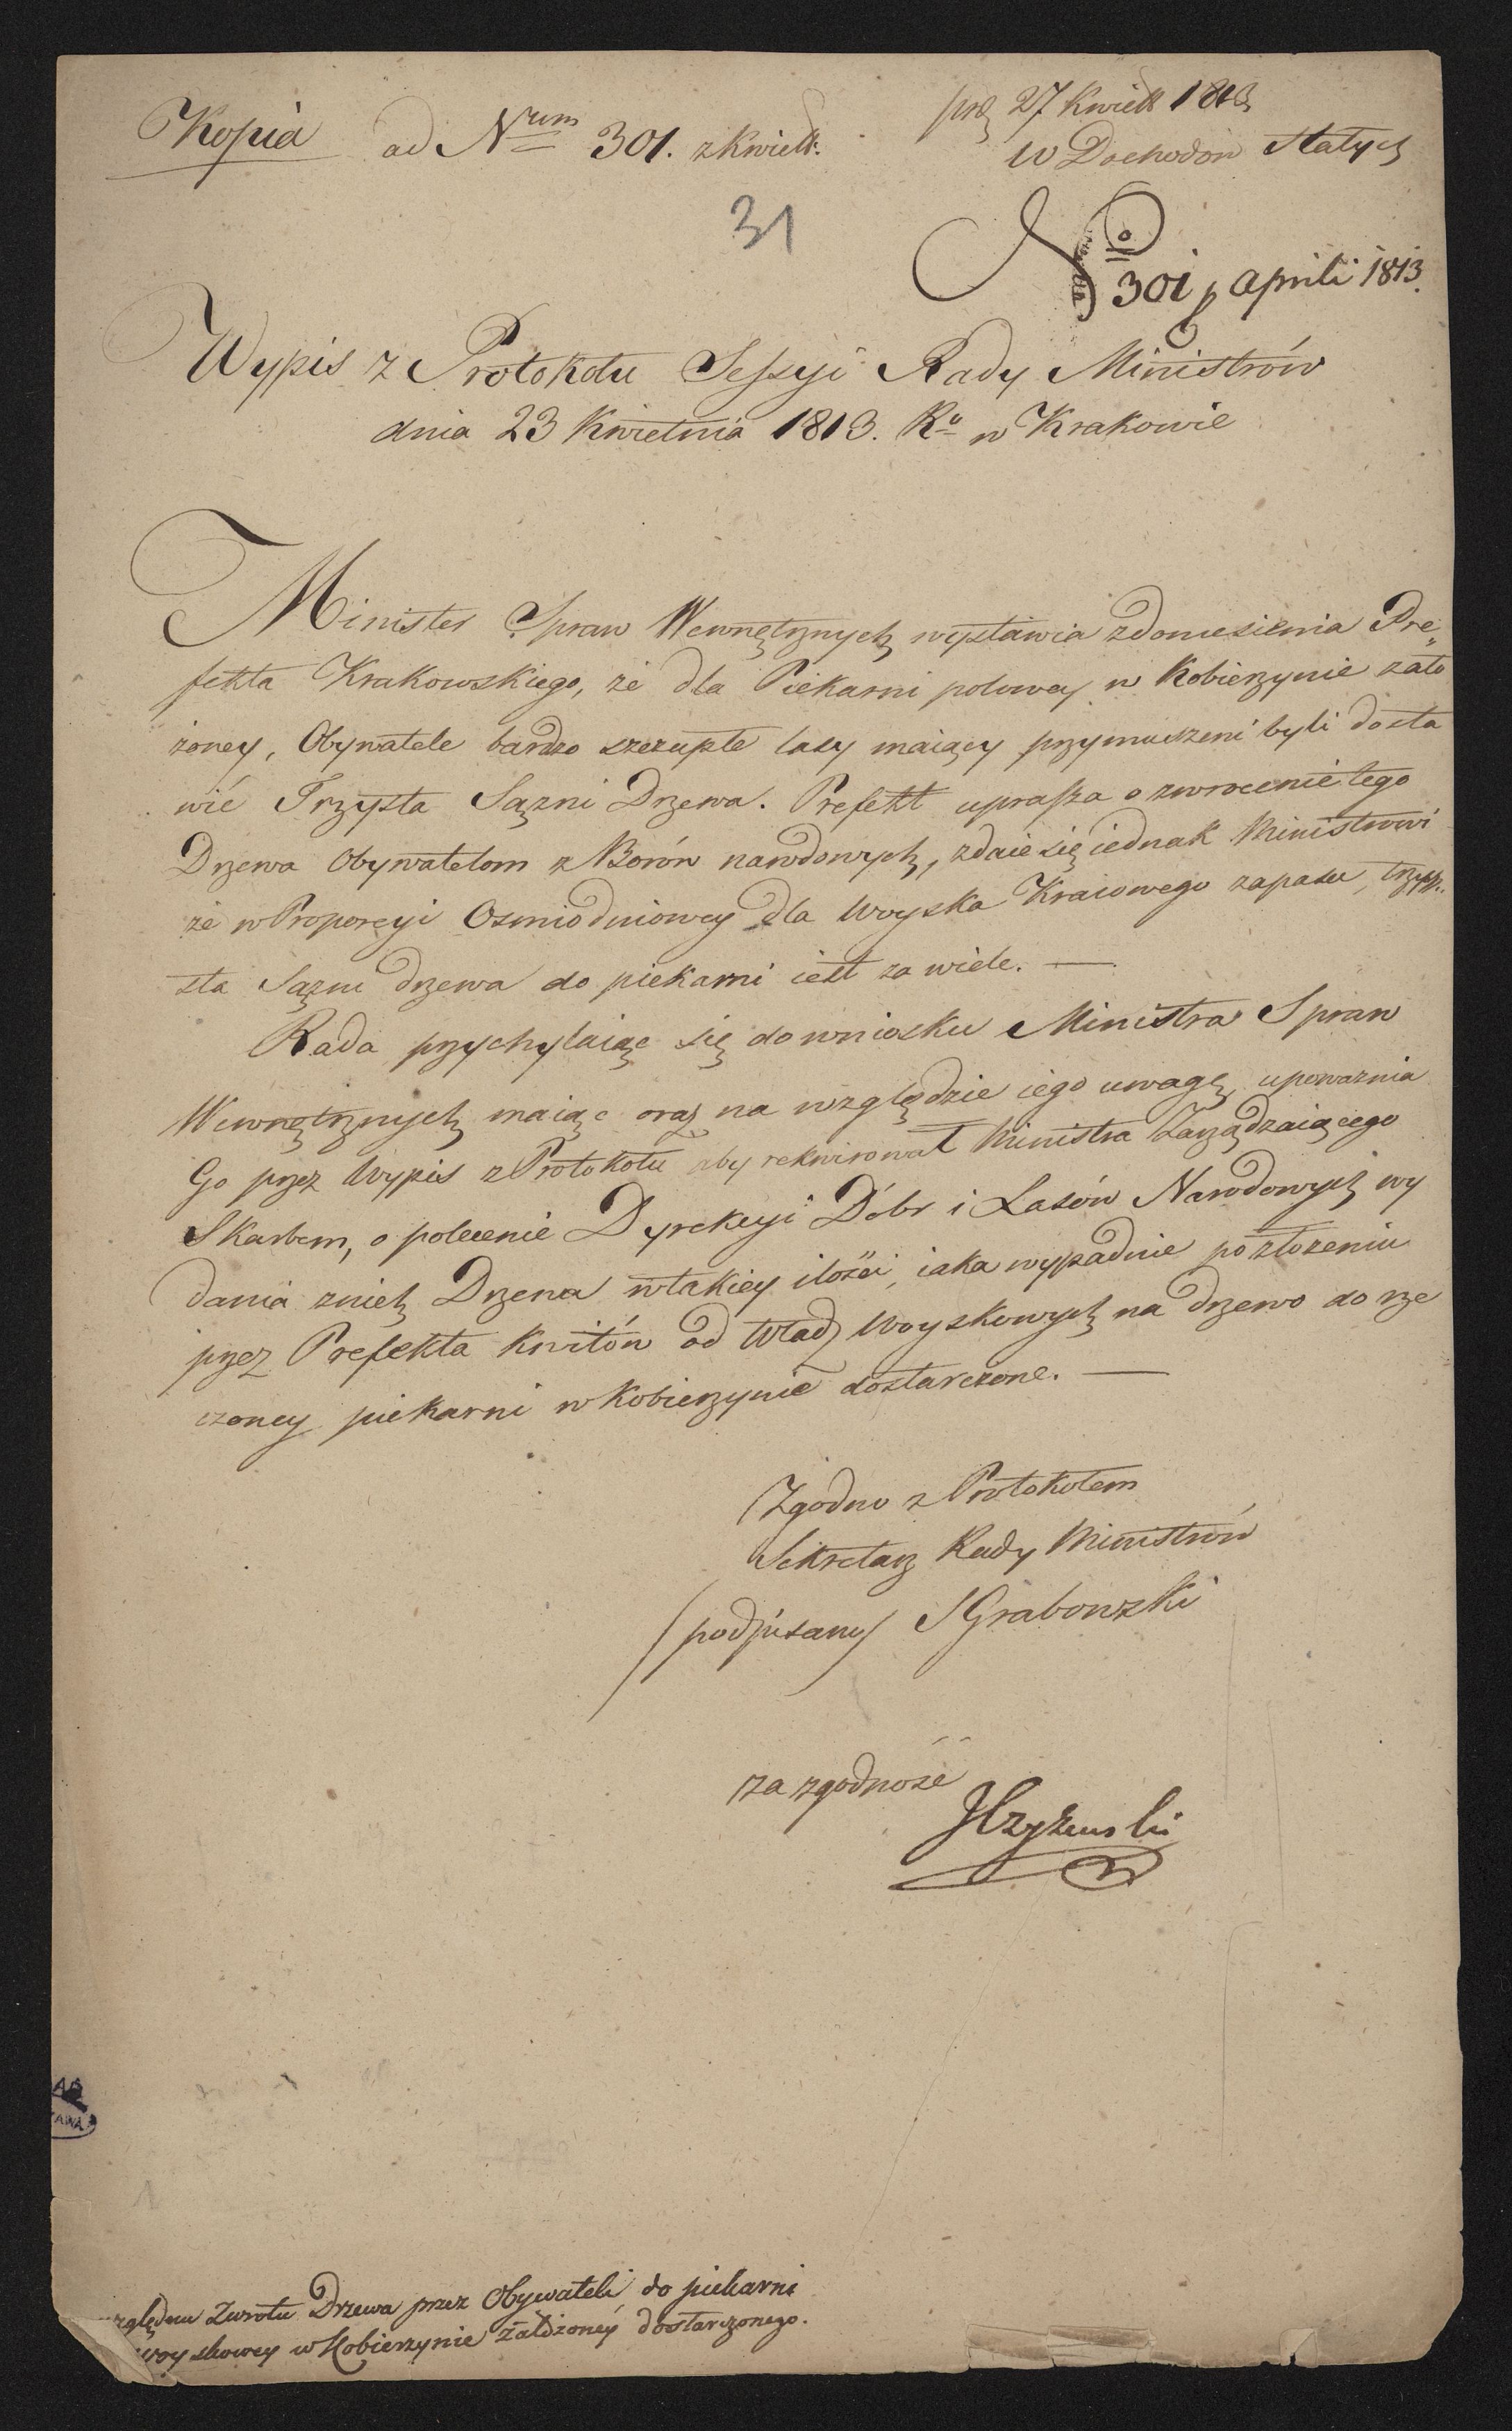 Kopia ad Nrum 301. z Kwiet.
prs 27 Kwiet 1813
W Dochodów Stałych
31
No 301 Aprili 1813.
Wypis z Protokołu Sessyi Rady Ministrów
dnia 23 Kwietnia 1813. Ru w Krakowie
Minister Spraw Wewnętrznych wystawia z doniesienia Pre„
fekta Krakowskiego, że dla Piekarni polowey w Kobierzynie zało
żoney, Obywatele bardzo szczupłe lasy maiący przymuszeni byli dosta
wić Trzysta Sążni Drzewa. Prefekt uprasza o zwrocenie tego
Drzewa Obywatelom z Borów narodowych, zdaie się iednak Ministrowi
że w Proporcyi Osmiodniowey dla Woyska Kraiowego zapasu, trzy
sta Sążni drzewa do piekarni iest za wiele. —
Rada przychylaiąc się do wniosku Ministra Spraw
Wewnętrznych maiąc oraz na względzie iego uwagę, upoważnia
Go przez Wypis z Protokołu aby rekwirował Ministra Zarządzaiącego
Skarbem, o polecenie Dyrekcyi Dóbr i Lasów Narodowych wy
dania z nich Drzewa w takiey ilości, iaka wypadnie po złożeniu
przez Prefekta Kwitów od Władz Woyskowych na drzewo do rze
czoney piekarni w Kobierzynie dostarczone. —
Zgodno z Protokołem
Sekretarz Rady Ministrów
/podpisany/ S Grabowski
za zgodność
względem Zwrotu Drzewa przez Obywateli do piekarni
woyskowey w Kobierzynie założoney dostarczonego.